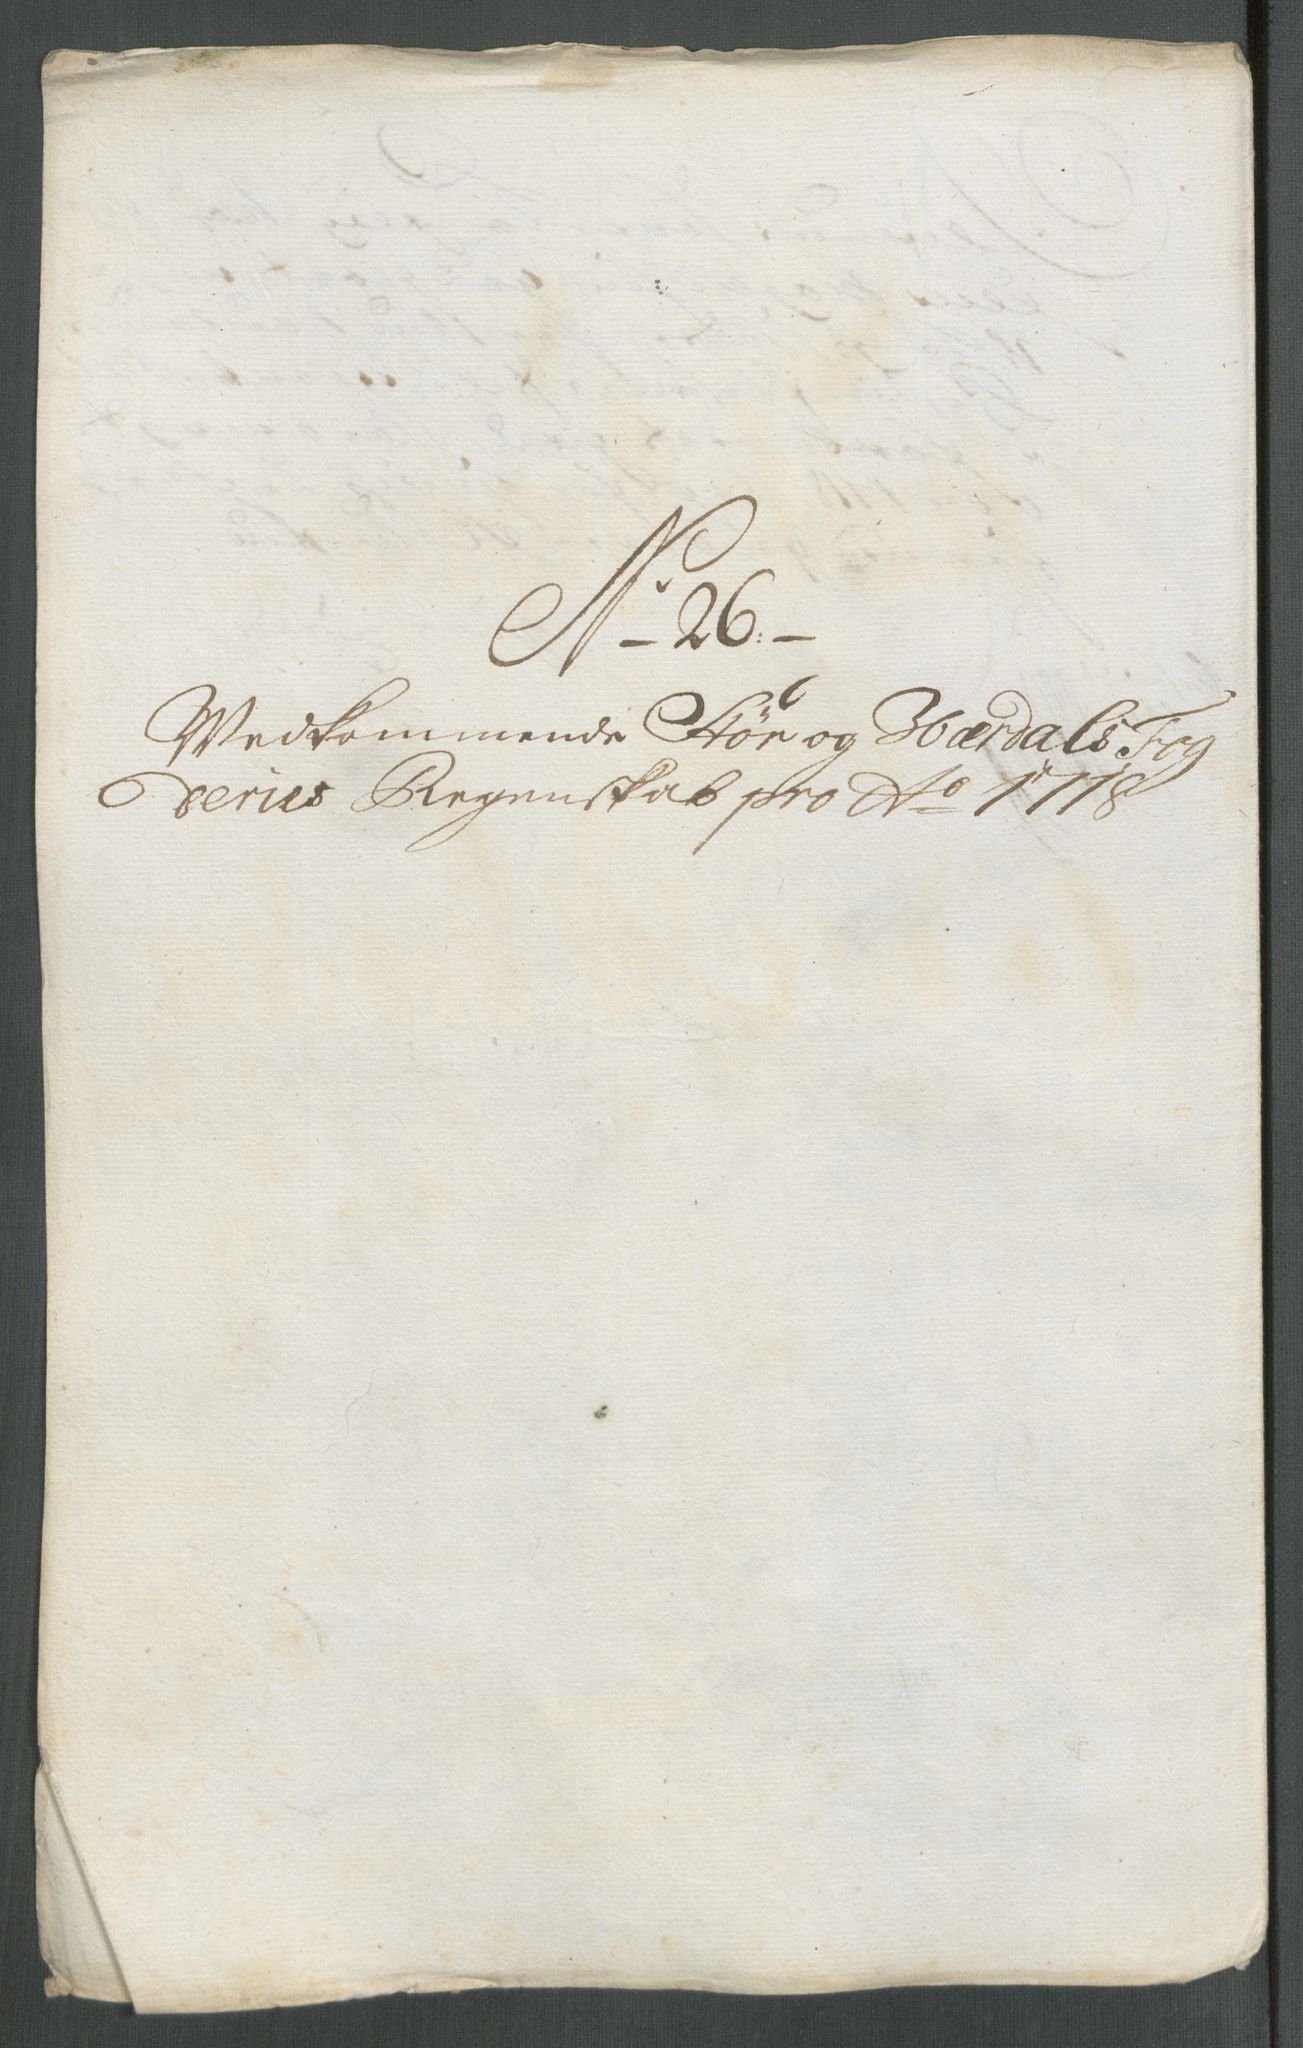 No 26:
Vedkommende Stör og Værdals Fog
deries Regenskab pro Ao 1718